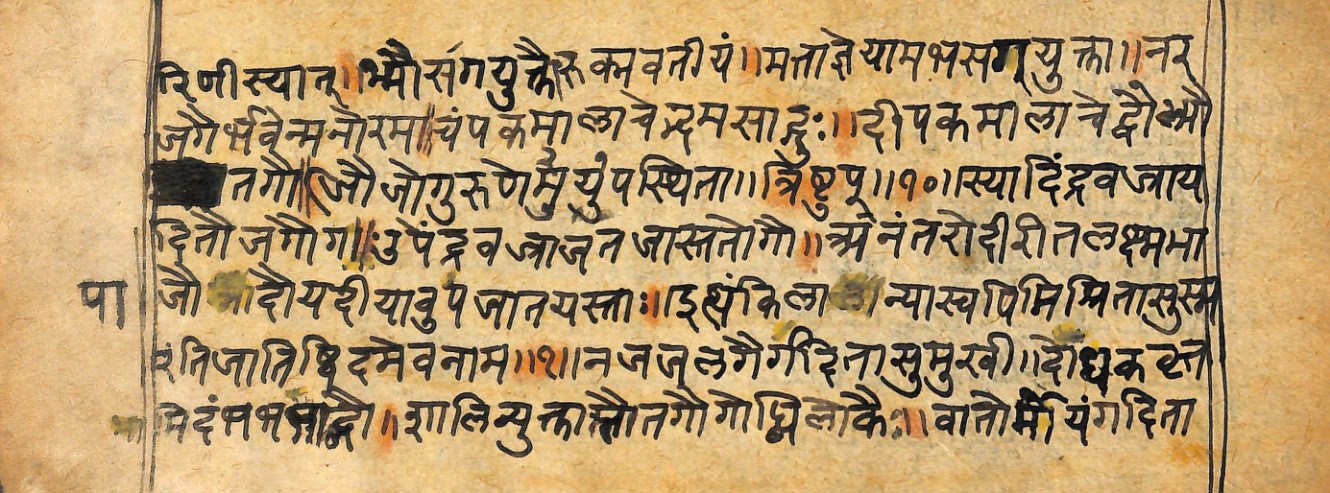 रिणीस्यात्॥भ्मौसगयुक्तैरुक्मवतीयं॥मत्ताज्ञेयामभसगयुक्ता॥नर
जगैर्भवेन्मनोरमा॥चंपकमालाचेद्भमसाद्गुः॥दीपकमालाचेद्भौभ्मौ
तगौ॥ज्जौजोगुरुणेमुयुंपस्थिता॥त्रिष्टुप्॥१०॥स्यादिंद्रवज्राय
दितौजगौग॥ःउपेंद्रवज्राजतजास्ततोगौ॥अनंतरोदीरीतलक्ष्ममा
पा
जौ दौयदीयावुपजातयस्ताः॥इत्थंकिला न्यास्वपिमिश्रितासुस्म
रंतिजातिष्विदमेवनाम॥१॥नजजलगैर्गदितासुमुखी॥दोधकवृत्त
मिदंभभभाद्गौ॥शालिन्युक्ताम्तौतगौगोब्धिलोकैः॥वातोर्मीयंगदिता